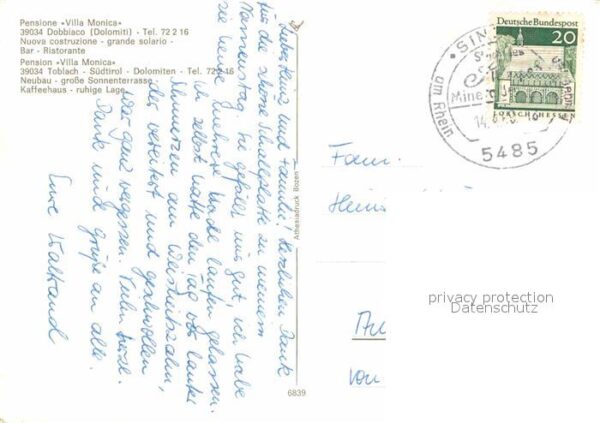 Pensione «Villa Monica»
39034 Dobbiaco (Dolomiti) - Tel. 72 2 16
Nuova costruzione - grande solario -
Bar - Ristorante
Pension «Villa Monica»
39034 Toblach - Südtirol - Dolomiten - Tel. 72 2 16
Neubau - große Sonnenterrasse -
Kaffeehaus - ruhige Lage
Lieber Heinz und Familie! Herzlichen Dank
für die schöne Schallplatte zu meinem
Namenstag. Sie gefällt uns gut, ich habe
sie heute mehrere Male laufen gelassen.
Ich selbst hatte den Tag vor lauter
Schmerzen am Weisheitszahn,
der vereitert und geschwollen
war ganz vergessen. Vielen herzl.
Dank und Grüße an alle.
Eure Waltraud
Athesiadruck Bozen
6839
Deutsche Bundespost
20
LORSCH/HESSEN
SINZIG
am Rhein
5485
Fam.
Heinz
von
privacy protection
Datenschutz